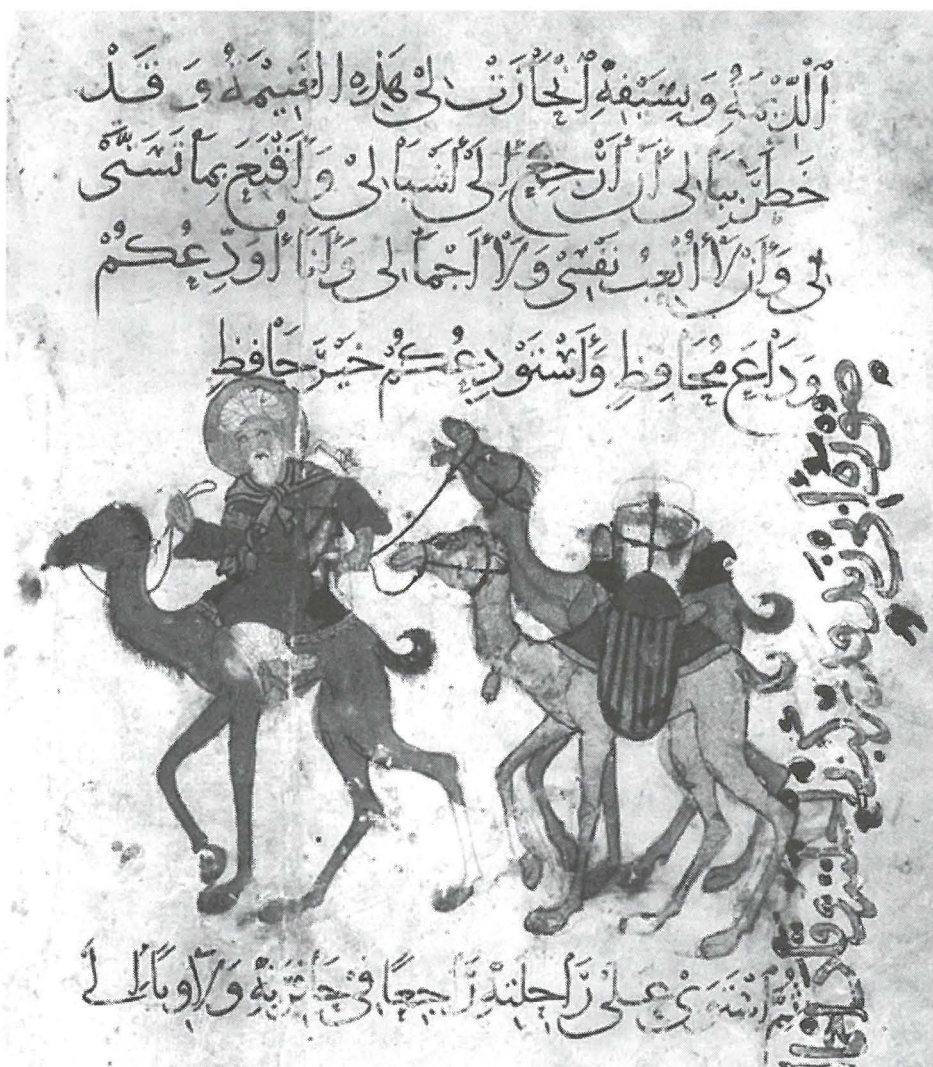 الدِّيمَةُ وَبِسَيْفِهِ انْحَازَتْ إلى هَذِهِ الغَنِيمَةُ وَقَدْ
خَطَرَ بِبَالى أَنْ أَرْجِعَ إِلَى أَشْبَالى وَأَقْنَعَ بِمَا تَسَنَّى
لى وَأَنْ لَا أُتْعِبَ نَفْسِى وَلَا أَجْمَالى وَأَنَا أُوَدِّعُكُمْ
وَدَاعَ مُحَافِظٍ وَأَسْتَوْدِعُكُمْ خَيْرَ حَافِظٍ
ثُمَّ اسْتَوَى عَلَى رَاحِلَتِهِ رَاجِعًا فِى حَافِرَتِهِ وَلَاوِيًا إلى
صورة ابى زيد وقد ركب